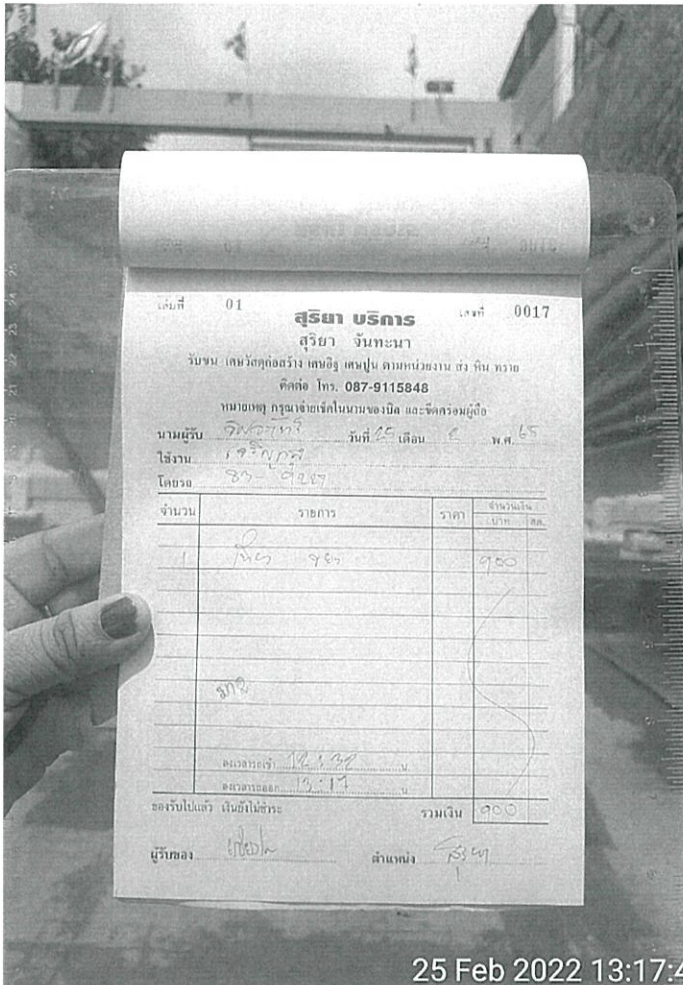 เล่มที่ 01 เลขที่ 0017
สุริยา บริการ
สุริยา จันทะนา
รับขน เศษวัสดุก่อสร้าง เศษอิฐ เศษปูน ตามหน่วยงาน ส่ง หิน ทราย
ติดต่อ โทร. 087-9115848
หมายเหตุ กรุณาจ่ายเช็คในนามของบิล และขีดคร่อมผู้ถือ
นามผู้รับ วันที่ 25 เดือน 2 พ.ศ. 65
ใช้งาน
โดยรถ 83-
จำนวน รายการ ราคา จำนวนเงิน
บาท สต.
1 เที่ยว ขยะ 900
ลงเวลารถเข้า 12:32 น
ลงเวลารถออก 13:17 น
ของรับไปแล้ว เงินยังไม่ชำระ รวมเงิน 900
ผู้รับของ ตำแหน่ง สุริยา
25 Feb 2022 13:17:4